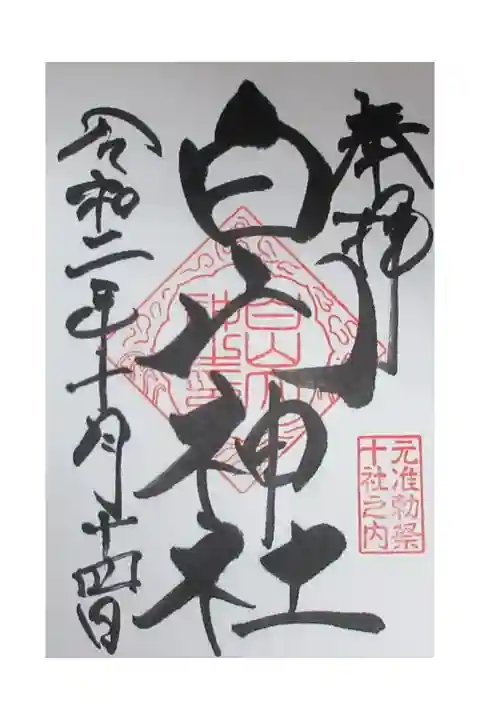 奉拝
白山神社
令和二年十月十四日
元准勅祭
十社之内